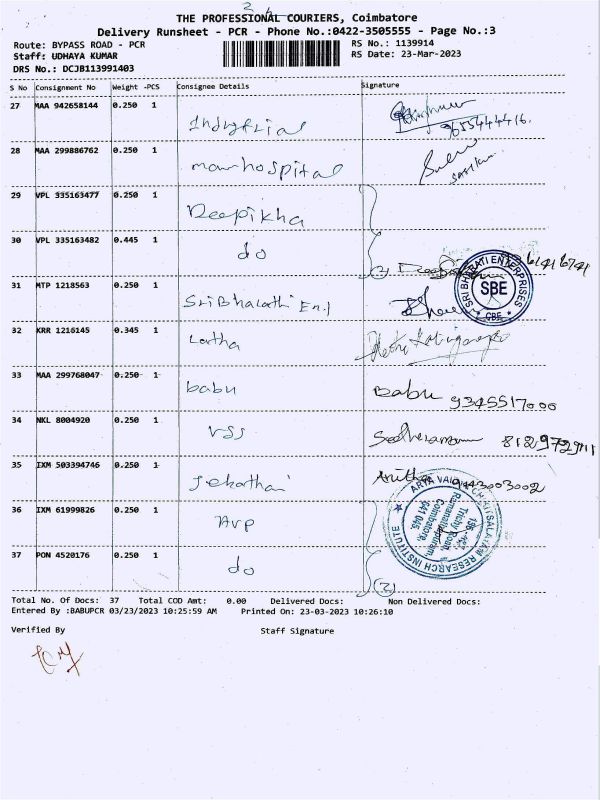 THE PROFESSIONAL COURIERS, Coimbatore
Delivery Runsheet - PCR - Phone No.:0422-3505555 - Page No.:3
Route: BYPASS ROAD - PCR
RS No.: 1139914
Staff: UDHAYA KUMAR
RS Date: 23-Mar-2023
DRS No.: DCJB113991403
S No Consignment No Weight -PCS Consignee Details Signature
27 MAA 942658144 0.250 1 9655444416.
28 MAA 299886762 0.250 1 hospital
29 VPL 335163477 0.250 1 Deepikha
30 VPL 335163482 0.445 1 do (2)
31 MTP 1218563 0.250 1 SriBharathi
SRI BHARATI ENTERPRISES SBE CBE
32 KRR 1216145 0.345 1 Lartha
33 MAA 299768047 0.250 1 babu Babu 9345517000
34 NKL 8004920 0.250 1 VSS 8129729111
35 IXM 503394746 0.250 1 Anitha 9443003002
36 IXM 61999826 0.250 1 AVP
ARYA VAIDYA CHIKITSALAYAM RESEARCH INSTITUTE
Trichy Road,
Ramanathapuram,
Coimbatore,
641 045.
37 PON 4520176 0.250 1 do (2)
Total No. Of Docs: 37 Total COD Amt: 0.00 Delivered Docs: Non Delivered Docs:
Entered By :BABUPCR 03/23/2023 10:25:59 AM Printed On: 23-03-2023 10:26:10
Verified By Staff Signature